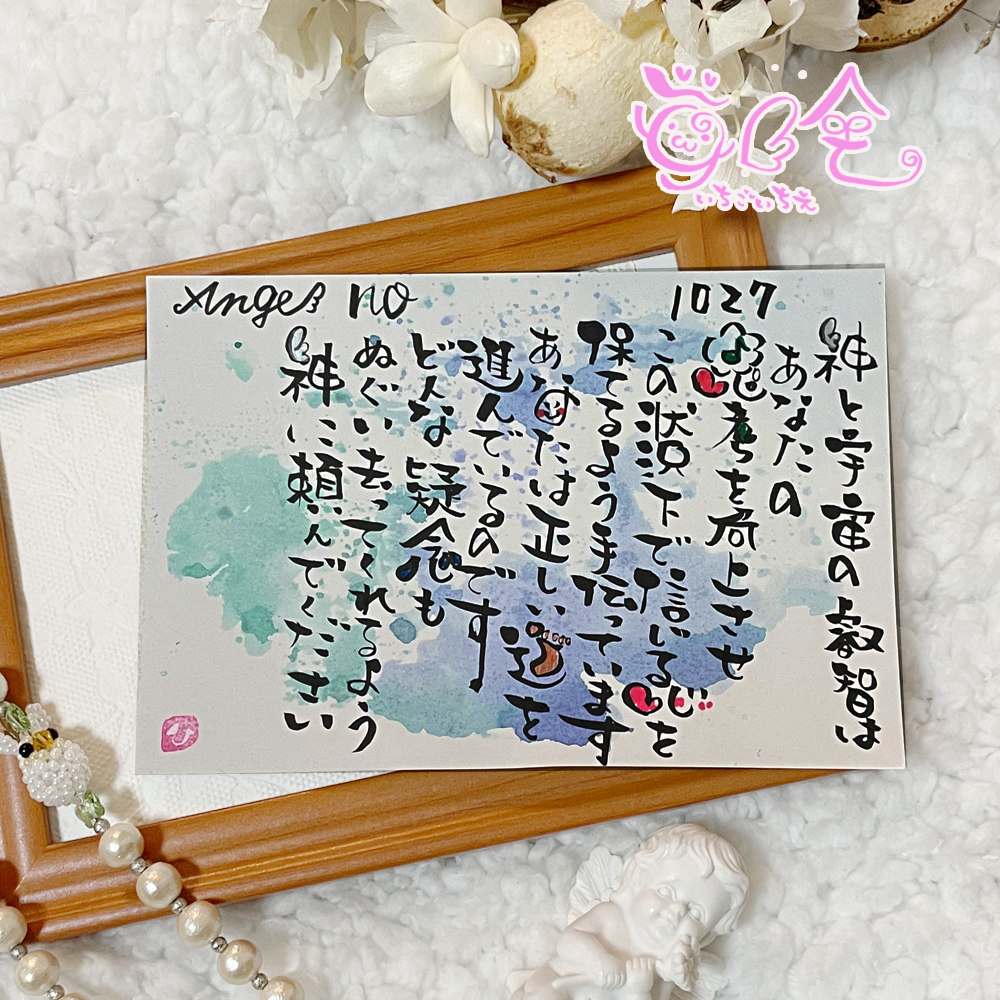 Angel no 1027
神と宇宙の叡智は
あなたの
思考を向上させ
この状況下で信じる心を
保てるよう手伝っています
あなたは正しい道を
進んでいるのです
どんな疑念も
ぬぐい去ってくれるよう
神に頼んでください
いちごいちえ